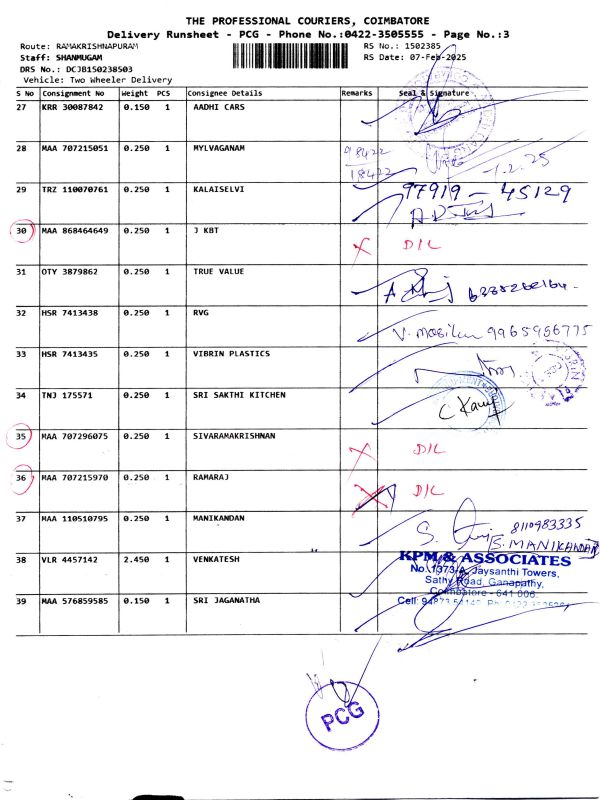 THE PROFESSIONAL COURIERS, COIMBATORE
Delivery Runsheet - PCG - Phone No.:0422-3505555 - Page No.:3
Route: RAMAKRISHNAPURAM RS No.: 1502385
Staff: SHANMUGAM RS Date: 07-Feb-2025
DRS No.: DCJB150238503
Vehicle: Two Wheeler Delivery
S No Consignment No Weight PCS Consignee Details Remarks Seal & Signature
27 KRR 30087842 0.150 1 AADHI CARS
28 MAA 707215051 0.250 1 MYLVAGANAM 98422
18422
29 TRZ 110070761 0.250 1 KALAISELVI 97919 - 45129
30 MAA 868464649 0.250 1 J KBT X D/L
31 OTY 3879862 0.250 1 TRUE VALUE
32 HSR 7413438 0.250 1 RVG
V. Masilan 9965966775
33 HSR 7413435 0.250 1 VIBRIN PLASTICS
34 TNJ 175571 0.250 1 SRI SAKTHI KITCHEN
35 MAA 707296075 0.250 1 SIVARAMAKRISHNAN X D/L
36 MAA 707215970 0.250 1 RAMARAJ X D/L
37 MAA 110510795 0.250 1 MANIKANDAN 8110983335
S. MANIKANDAN
38 VLR 4457142 2.450 1 VENKATESH KPM & ASSOCIATES
No.1373-A, Jaysanthi Towers,
Sathy Road, Ganapathy,
Coimbatore - 641 006.
39 MAA 576859585 0.150 1 SRI JAGANATHA Cell:
PCG